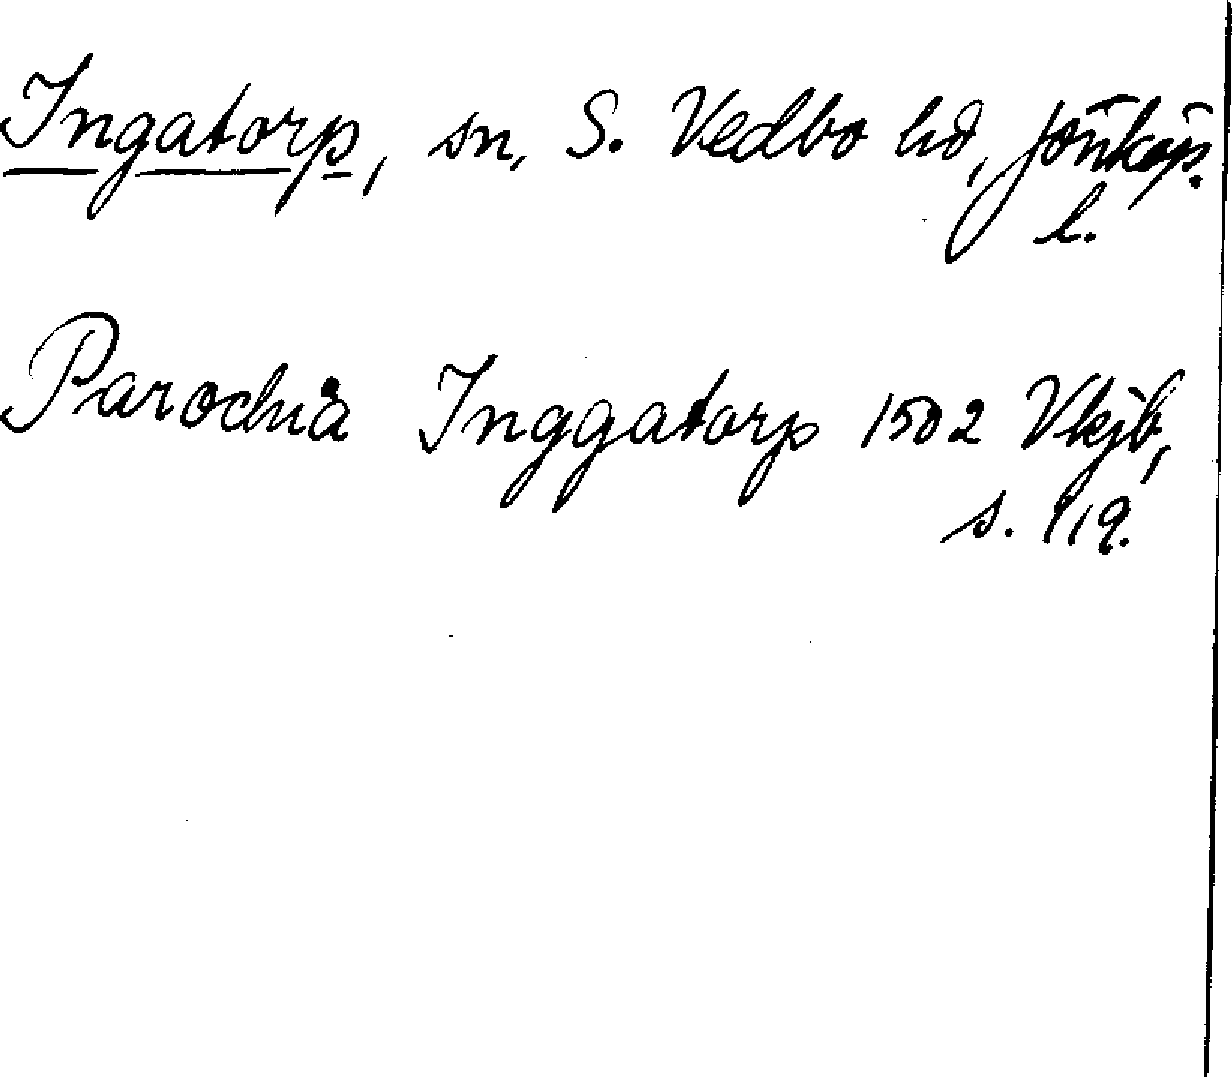 Ingatorp, sn, S. Vedbo hd, Jönköp.
l.
Parochia Inggatorp 1502 Vkjb,
s. 119.